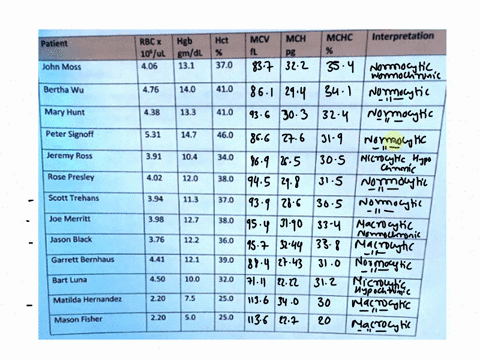 Patient RBC x 10⁶/uL Hgb gm/dL Hct % MCV fL MCH pg MCHC % Interpretation
John Moss 4.06 13.1 37.0 83.7 32.2 35.4 Normocytic
Normochromic
Bertha Wu 4.76 14.0 41.0 86.1 29.4 34.1 Normocytic
-"-
Mary Hunt 4.38 13.3 41.0 93.6 30.3 32.4 Normocytic
-"-
Peter Signoff 5.31 14.7 46.0 86.6 27.6 31.9 Normocytic
-"-
Jeremy Ross 3.91 10.4 34.0 86.9 26.5 30.5 Microcytic Hypo
chromic
Rose Presley 4.02 12.0 38.0 94.5 29.8 31.5 Normocytic
-"-
Scott Trehans 3.94 11.3 37.0 93.9 28.6 30.5 Normocytic
-"-
Joe Merritt 3.98 12.7 38.0 95.4 31.90 33.4 Macrocytic
Normochromic
Jason Black 3.76 12.2 36.0 95.7 32.44 33.8 Macrocytic
-"-
Garrett Bernhaus 4.41 12.1 39.0 88.4 27.43 31.0 Normocytic
-"-
Bart Luna 4.50 10.0 32.0 71.11 22.22 31.2 Microcytic
Hypochromic
Matilda Hernandez 2.20 7.5 25.0 113.6 34.0 30 Macrocytic
-"-
Mason Fisher 2.20 5.0 25.0 113.6 22.7 20 Macrocytic
-"-